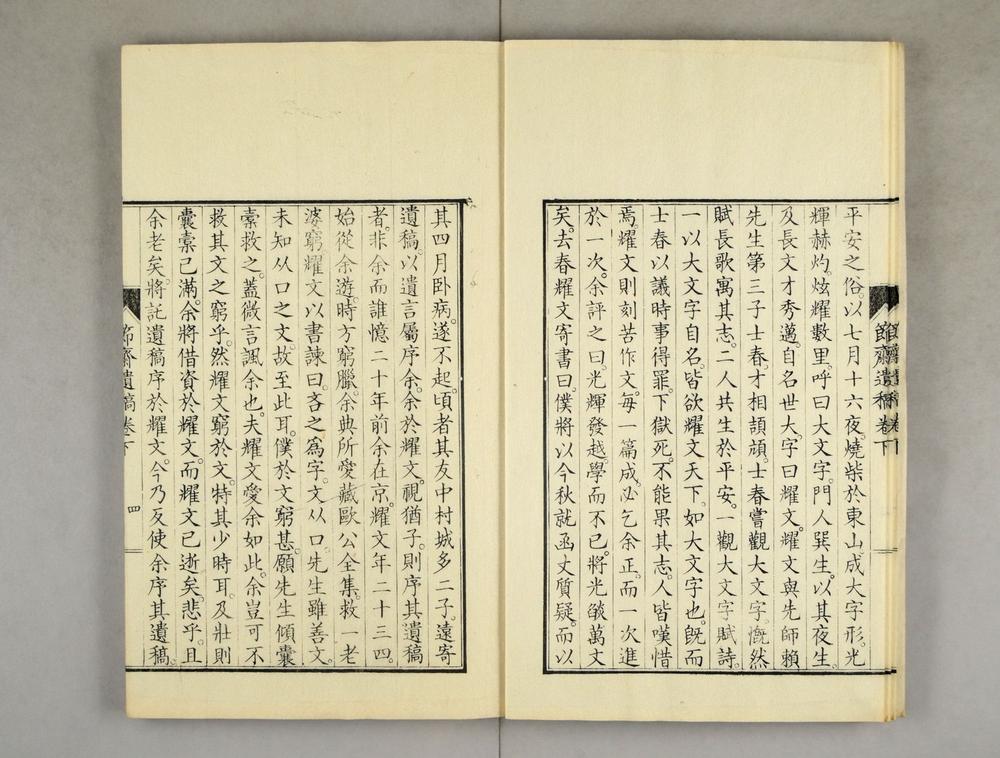 平安之俗。以七月十六夜。燒柴於東山。成大字形。光
輝赫灼。炫耀數里。呼曰大文字。門人巽生。以其夜生。
及長文才秀邁。自名世大。字曰耀文。耀文與先師賴
先生第三子士春。才相頡頏。士春嘗觀大文字。慨然
賦長歌寓其志。二人共生於平安。一觀大文字賦詩。
一以大文字自名。皆欲耀文天下。如大文字也。既而
士春以議時事得罪。下獄死。不能果其志。人皆嘆惜
焉。耀文則刻苦作文。每一篇成。必乞余正。而一次進
於一次。余評之曰。光輝發越。學而不已。將光燄萬丈
矣。去春耀文寄書曰。僕將以今秋就函丈質疑。而以
節齋遺稿卷下
其四月臥病。遂不起。頃者其友中村城多二子。遠寄
遺稿。以遺言屬序余。余於耀文。視猶子。則序其遺稿
者。非余而誰。憶二十年前余在京。耀文年二十三四。
始從余遊。時方窮臘。余典所愛藏歐公全集。救一老
婆窮。耀文以書諫曰。吝之爲字。文从口。先生雖善文。
未知从口之文。故至此耳。僕於文窮甚。願先生傾囊
橐救之。蓋微言諷余也。夫耀文愛余如此。余豈可不
救其文之窮乎。然耀文窮於文。特其少時耳。及壯則
囊橐已滿。余將借資於耀文。而耀文已逝矣。悲乎。且
余老矣。將託遺稿序於耀文。今乃反使余序其遺稿。
節齋遺稿卷下
四